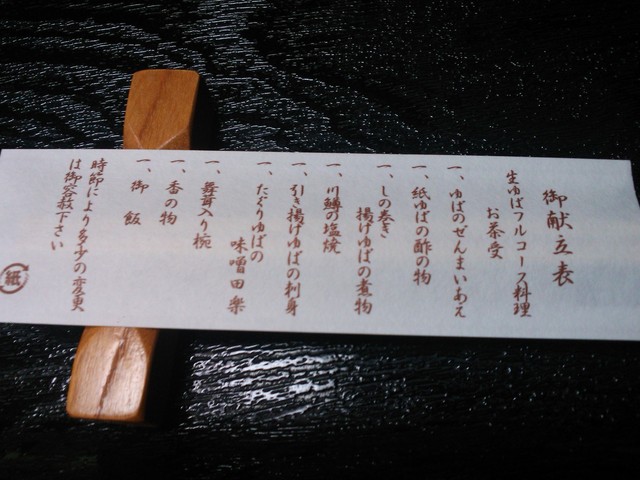 御献立表
生ゆばフルコース料理
お茶受
一、ゆばのぜんまいあえ
一、紙ゆばの酢の物
一、しの巻き
揚げゆばの煮物
一、川鱒の塩焼
一、引き揚げゆばの刺身
一、たぐりゆばの
味噌田楽
一、舞茸入り椀
一、香の物
一、御飯
時節により多少の変更
は御容赦下さい
紙